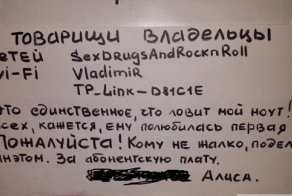 ТОВАРИЩИ ВЛАДЕЛЬЦЫ
СЕТЕЙ SexDrugsAndRocknRoll
Wi-Fi VladimiR
TP-Link-D81C1E
Это единственное, что ловит мой ноут!
всех, кажется, ему полюбилась первая
Пожалуйста! Кому не жалко,
нэтом. За абонентскую плату.
Алиса.